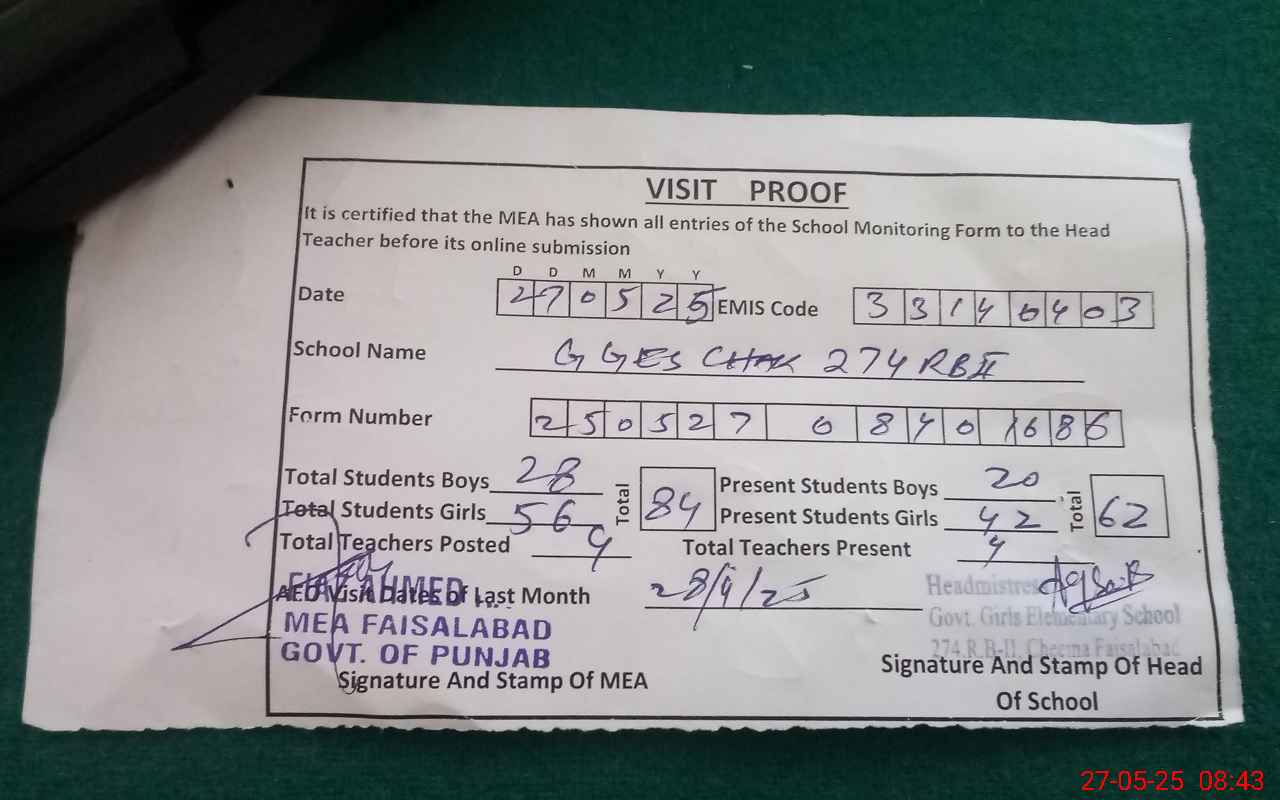 VISIT PROOF
It is certified that the MEA has shown all entries of the School Monitoring Form to the Head
Teacher before its online submission
D D M M Y Y
Date 270525 EMIS Code 33140403
School Name GGES CHAK 274 RB II
Form Number 250527 0840 1686
Total Students Boys 28 Total 84 Present Students Boys 20 Total 62
Total Students Girls 56 Present Students Girls 42
Total Teachers Posted 9 Total Teachers Present
AEO Visit Dates of Last Month 28/4/25
AHMED
MEA FAISALABAD
GOVT. OF PUNJAB
Signature And Stamp Of MEA
Headmistress
Govt. Girls Elementary School
274.R.B-II, Cheema Faisalabad
Signature And Stamp Of Head
Of School
27-05-25 08:43